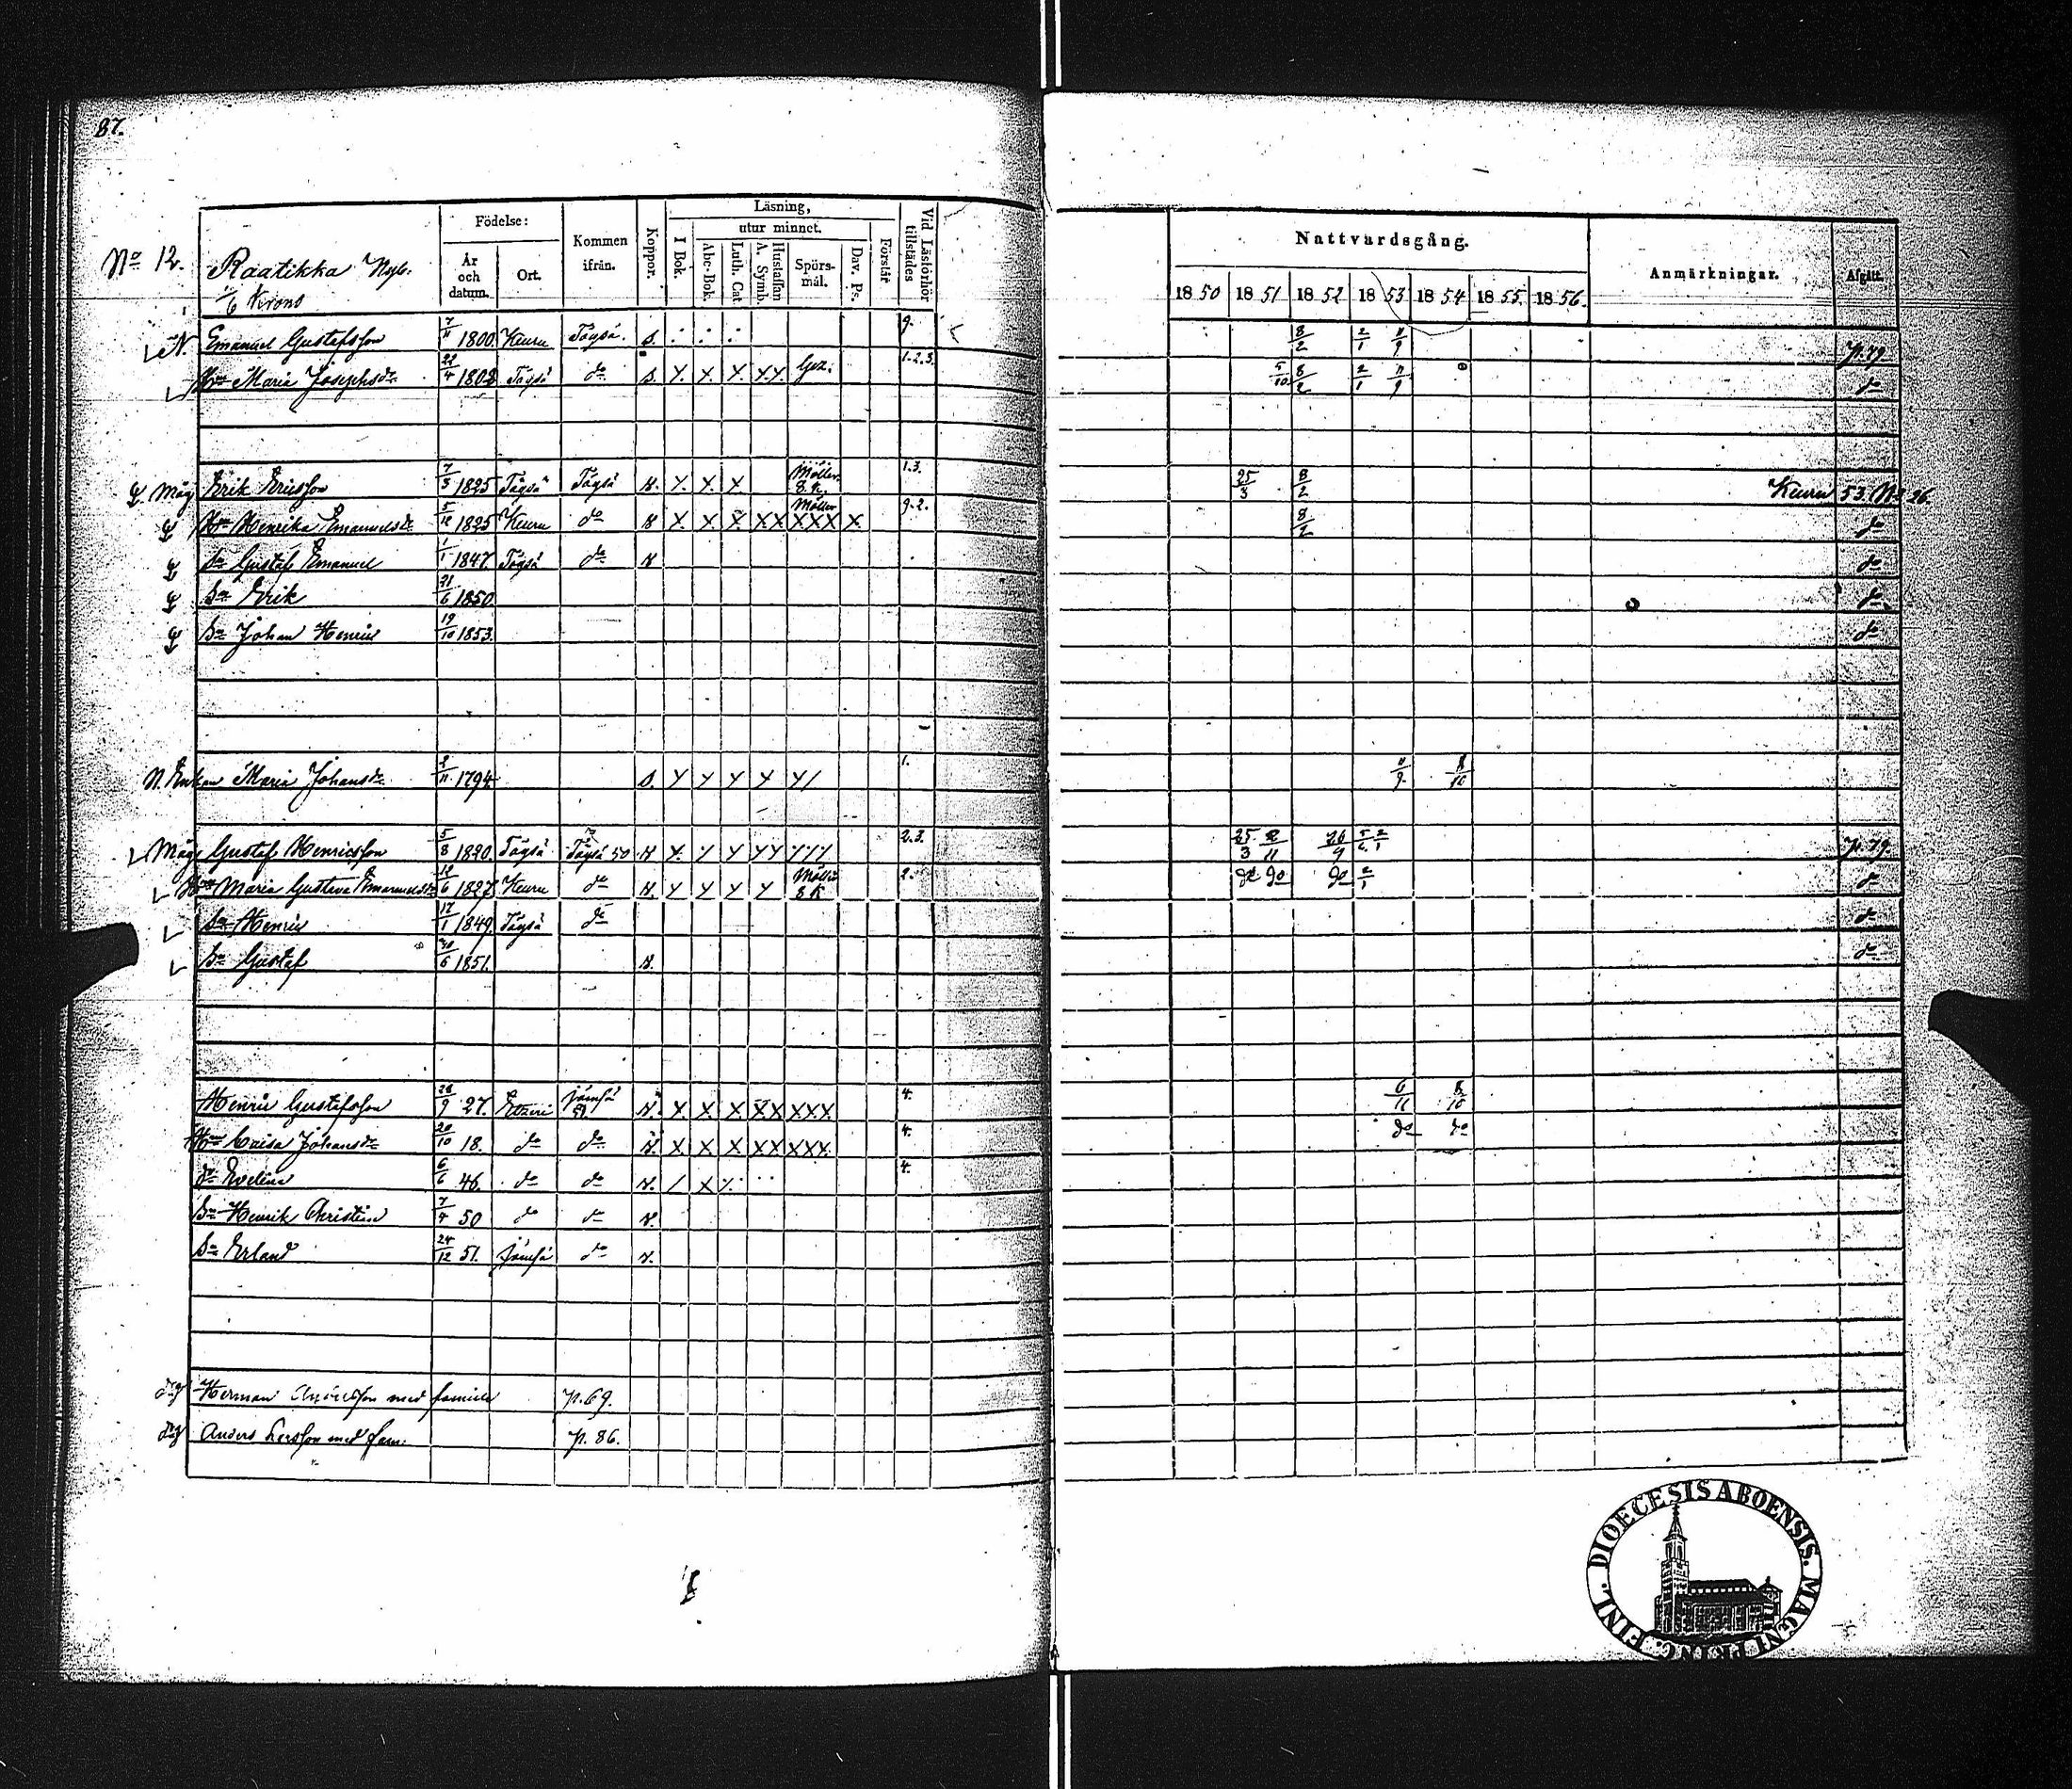 87.
No 12.
Raatikka Nyb.
1/6 Krono
Födelse:
År och datum.
Ort.
Kommen ifrån.
Koppor.
Läsning,
I Bok.
utur minnet.
Abc-Bok.
Luth. Cat.
Hustaflan A. Symb.
Spörs-mål.
Dav. Ps.
Förstår
Vid Läsförhör tillstädes
Nattvardsgång.
1850 1851 1852 1853 1854 1855. 1856.
Anmärkningar.
Afgått.
Emanuel Gustafsson 7/11 1800. Keuru Töysä. s. 9. 8/2 2/1 11/9 p.79.
Hu Maria Josephsdr 22/4 1808 Töysä do s. X. X. X. X.X. Gez. 1.2.3. 5/10 8/2 2/1 11/9 do
Måg Erik Ericsson 7/3 1825 Töysä Töysä X. X. X 1.3. 25/3 8/2 Keuru 53. No 26.
Hu Henrika Emanuelsdr 5/12 1825 Keuru do X. X X XX XXX X. 9.2. 8/2 do
Sn Gustaf Emanuel 1/1 1847. Töysä do do
Sn Erik 21/6 1850. do
Sn Johan Henric 19/10 1853. do
N. Enkan Maria Johansdr 2/11 1794. s. 1. 11/9. 8/10
Måg Gustaf Henricsson 5/8 1820. Töysä Töysä 50 2.3. 25/3 26/9 p.79.
Hu Maria Gustava Emanuelsdr 12/6 1827. Keuru do 2. do do do 2/1 do
Sn Henric 17/1 1849. Töysä do do
Sn Gustaf 1851. do
Henric Gustafsson 28/9 27. Etseri Jämsä X X X XX XXX 4. 6/11 8/10
Hu Caisa Johansdr 20/10 18. do do X X X XX XXX. 4. do do
dr Evelina 6/6 46. do do 4.
Sn Henrik Christian 50 do do
Sn Erland 24/12 51. Jämsä do
Herman med familie p.69.
Anders med fam. p. 86.
DIOECESIS ABOENSIS. MAGNI PRINC. FINL.